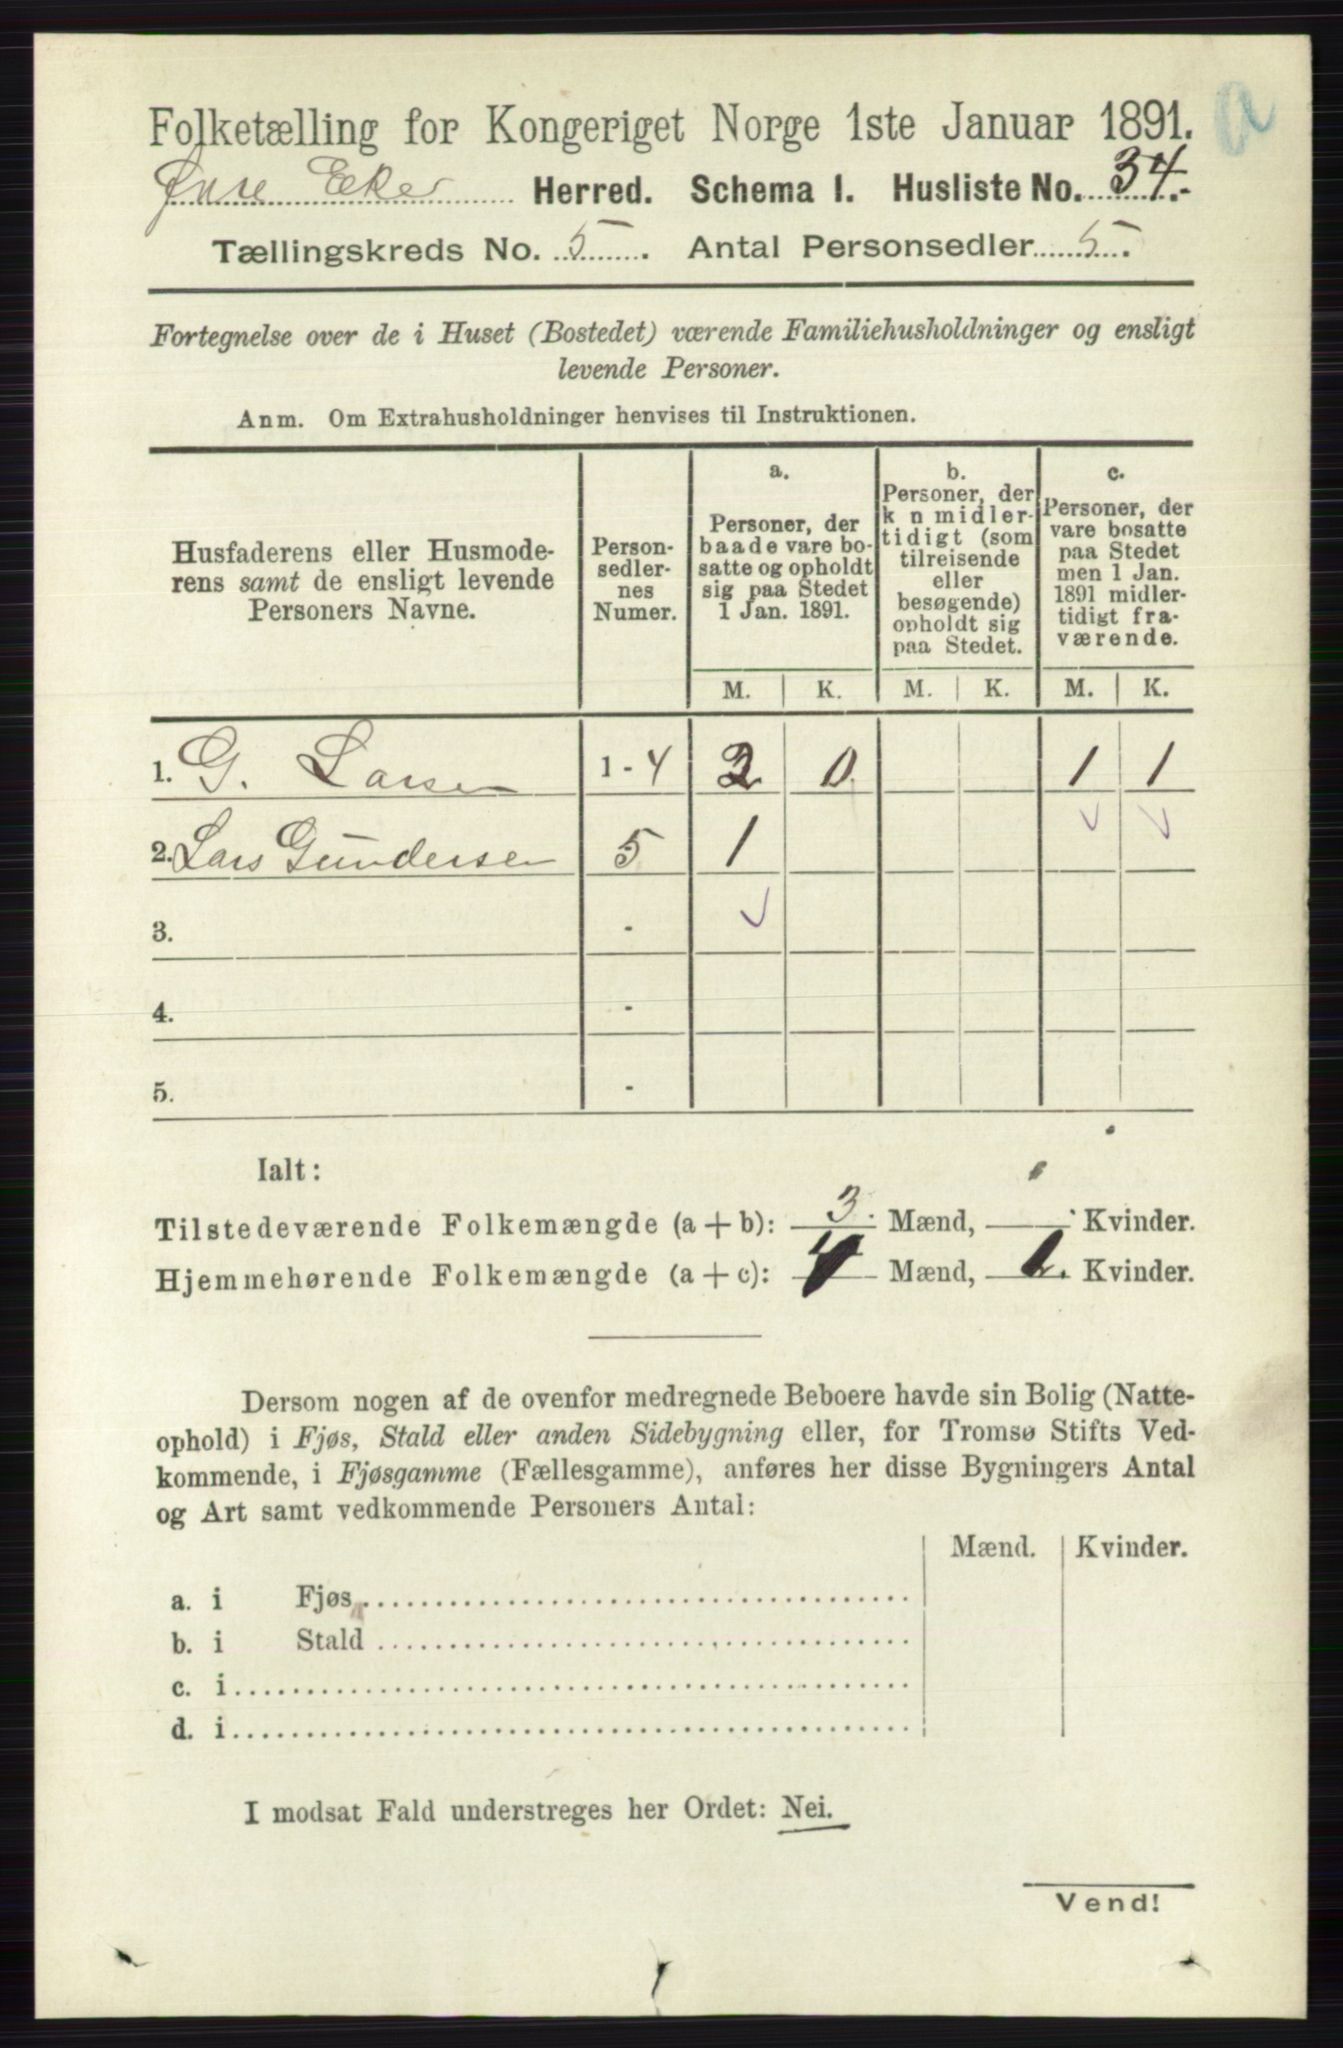 a
Folketælling for Kongeriget Norge 1ste Januar 1891.
Øvre Eker Herred. Schema I. Husliste No. 34.
Tællingskreds No. 5. Antal Personsedler 5.
Fortegnelse over de i Huset (Bostedet) værende Familiehusholdninger og ensligt
levende Personer.
Anm. Om Extrahusholdninger henvises til Instruktionen.
Husfaderens eller Husmode-
rens samt de ensligt levende
Personers Navne.
Person-
sedler-
nes
Numer.
a.
Personer, der
baade vare bo-
satte og opholdt
sig paa Stedet
1 Jan. 1891.
b.
Personer, der
k n midler-
tidigt (som
tilreisende
eller
besøgende)
opholdt sig
paa Stedet.
c.
Personer, der
vare bosatte
paa Stedet
men 1 Jan.
1891 midler-
tidigt fra-
værende.
M. K. M. K. M. K.
1. G. Larsen 1 - 4 2 0 1 1
2. Lars Gundersen 5 1
3. -
4. -
5. -
Ialt:
Tilstedeværende Folkemængde (a + b): 3. Mænd, Kvinder.
Hjemmehørende Folkemængde (a + c): 4 Mænd, 1. Kvinder.
Dersom nogen af de ovenfor medregnede Beboere havde sin Bolig (Natte-
ophold) i Fjøs, Stald eller anden Sidebygning eller, for Tromsø Stifts Ved-
kommende, i Fjøsgamme (Fællesgamme), anføres her disse Bygningers Antal
og Art samt vedkommende Personers Antal:
Mænd. Kvinder.
a. i Fjøs
b. i Stald
c. i
d. i
I modsat Fald understreges her Ordet: Nei.
Vend!